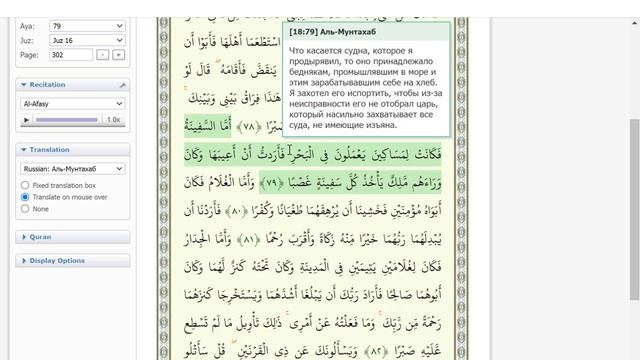 Aya: 79
Juz: Juz 16
Page: 302 - +
Recitation
Al-Afasy
1.0x
Translation
Russian: Аль-Мунтахаб
Fixed translation box
Translate on mouse over
None
Quran
Display Options
[18:79] Аль-Мунтахаб
Что касается судна, которое я
продырявил, то оно принадлежало
беднякам, промышлявшим в море и
этим зарабатывавшим себе на хлеб.
Я захотел его испортить, чтобы из-за
неисправности его не отобрал царь,
который насильно захватывает все
суда, не имеющие изъяна.
ٱسْتَطْعَمَا أَهْلَهَا فَأَبَوْا أَن
يَنقَضَّ فَأَقَامَهُ ۖ قَالَ لَوْ
هَٰذَا فِرَاقُ بَيْنِي وَبَيْنِكَ ۚ
صَبْرًا ﴿٧٨﴾ أَمَّا السَّفِينَةُ
فَكَانَتْ لِمَسَاكِينَ يَعْمَلُونَ فِي الْبَحْرِ فَأَرَدتُّ أَنْ أَعِيبَهَا وَكَانَ
وَرَاءَهُم مَّلِكٌ يَأْخُذُ كُلَّ سَفِينَةٍ غَصْبًا ﴿٧٩﴾ وَأَمَّا الْغُلَامُ فَكَانَ
أَبَوَاهُ مُؤْمِنَيْنِ فَخَشِينَا أَن يُرْهِقَهُمَا طُغْيَانًا وَكُفْرًا ﴿٨٠﴾ فَأَرَدْنَا أَن
يُبْدِلَهُمَا رَبُّهُمَا خَيْرًا مِّنْهُ زَكَاةً وَأَقْرَبَ رُحْمًا ﴿٨١﴾ وَأَمَّا الْجِدَارُ
فَكَانَ لِغُلَامَيْنِ يَتِيمَيْنِ فِي الْمَدِينَةِ وَكَانَ تَحْتَهُ كَنزٌ لَّهُمَا وَكَانَ
أَبُوهُمَا صَالِحًا فَأَرَادَ رَبُّكَ أَن يَبْلُغَا أَشُدَّهُمَا وَيَسْتَخْرِجَا كَنزَهُمَا
رَحْمَةً مِّن رَّبِّكَ ۚ وَمَا فَعَلْتُهُ عَنْ أَمْرِي ۚ ذَٰلِكَ تَأْوِيلُ مَا لَمْ تَسْطِع
عَّلَيْهِ صَبْرًا ﴿٨٢﴾ وَيَسْأَلُونَكَ عَن ذِي الْقَرْنَيْنِ ۖ قُلْ سَأَتْلُو